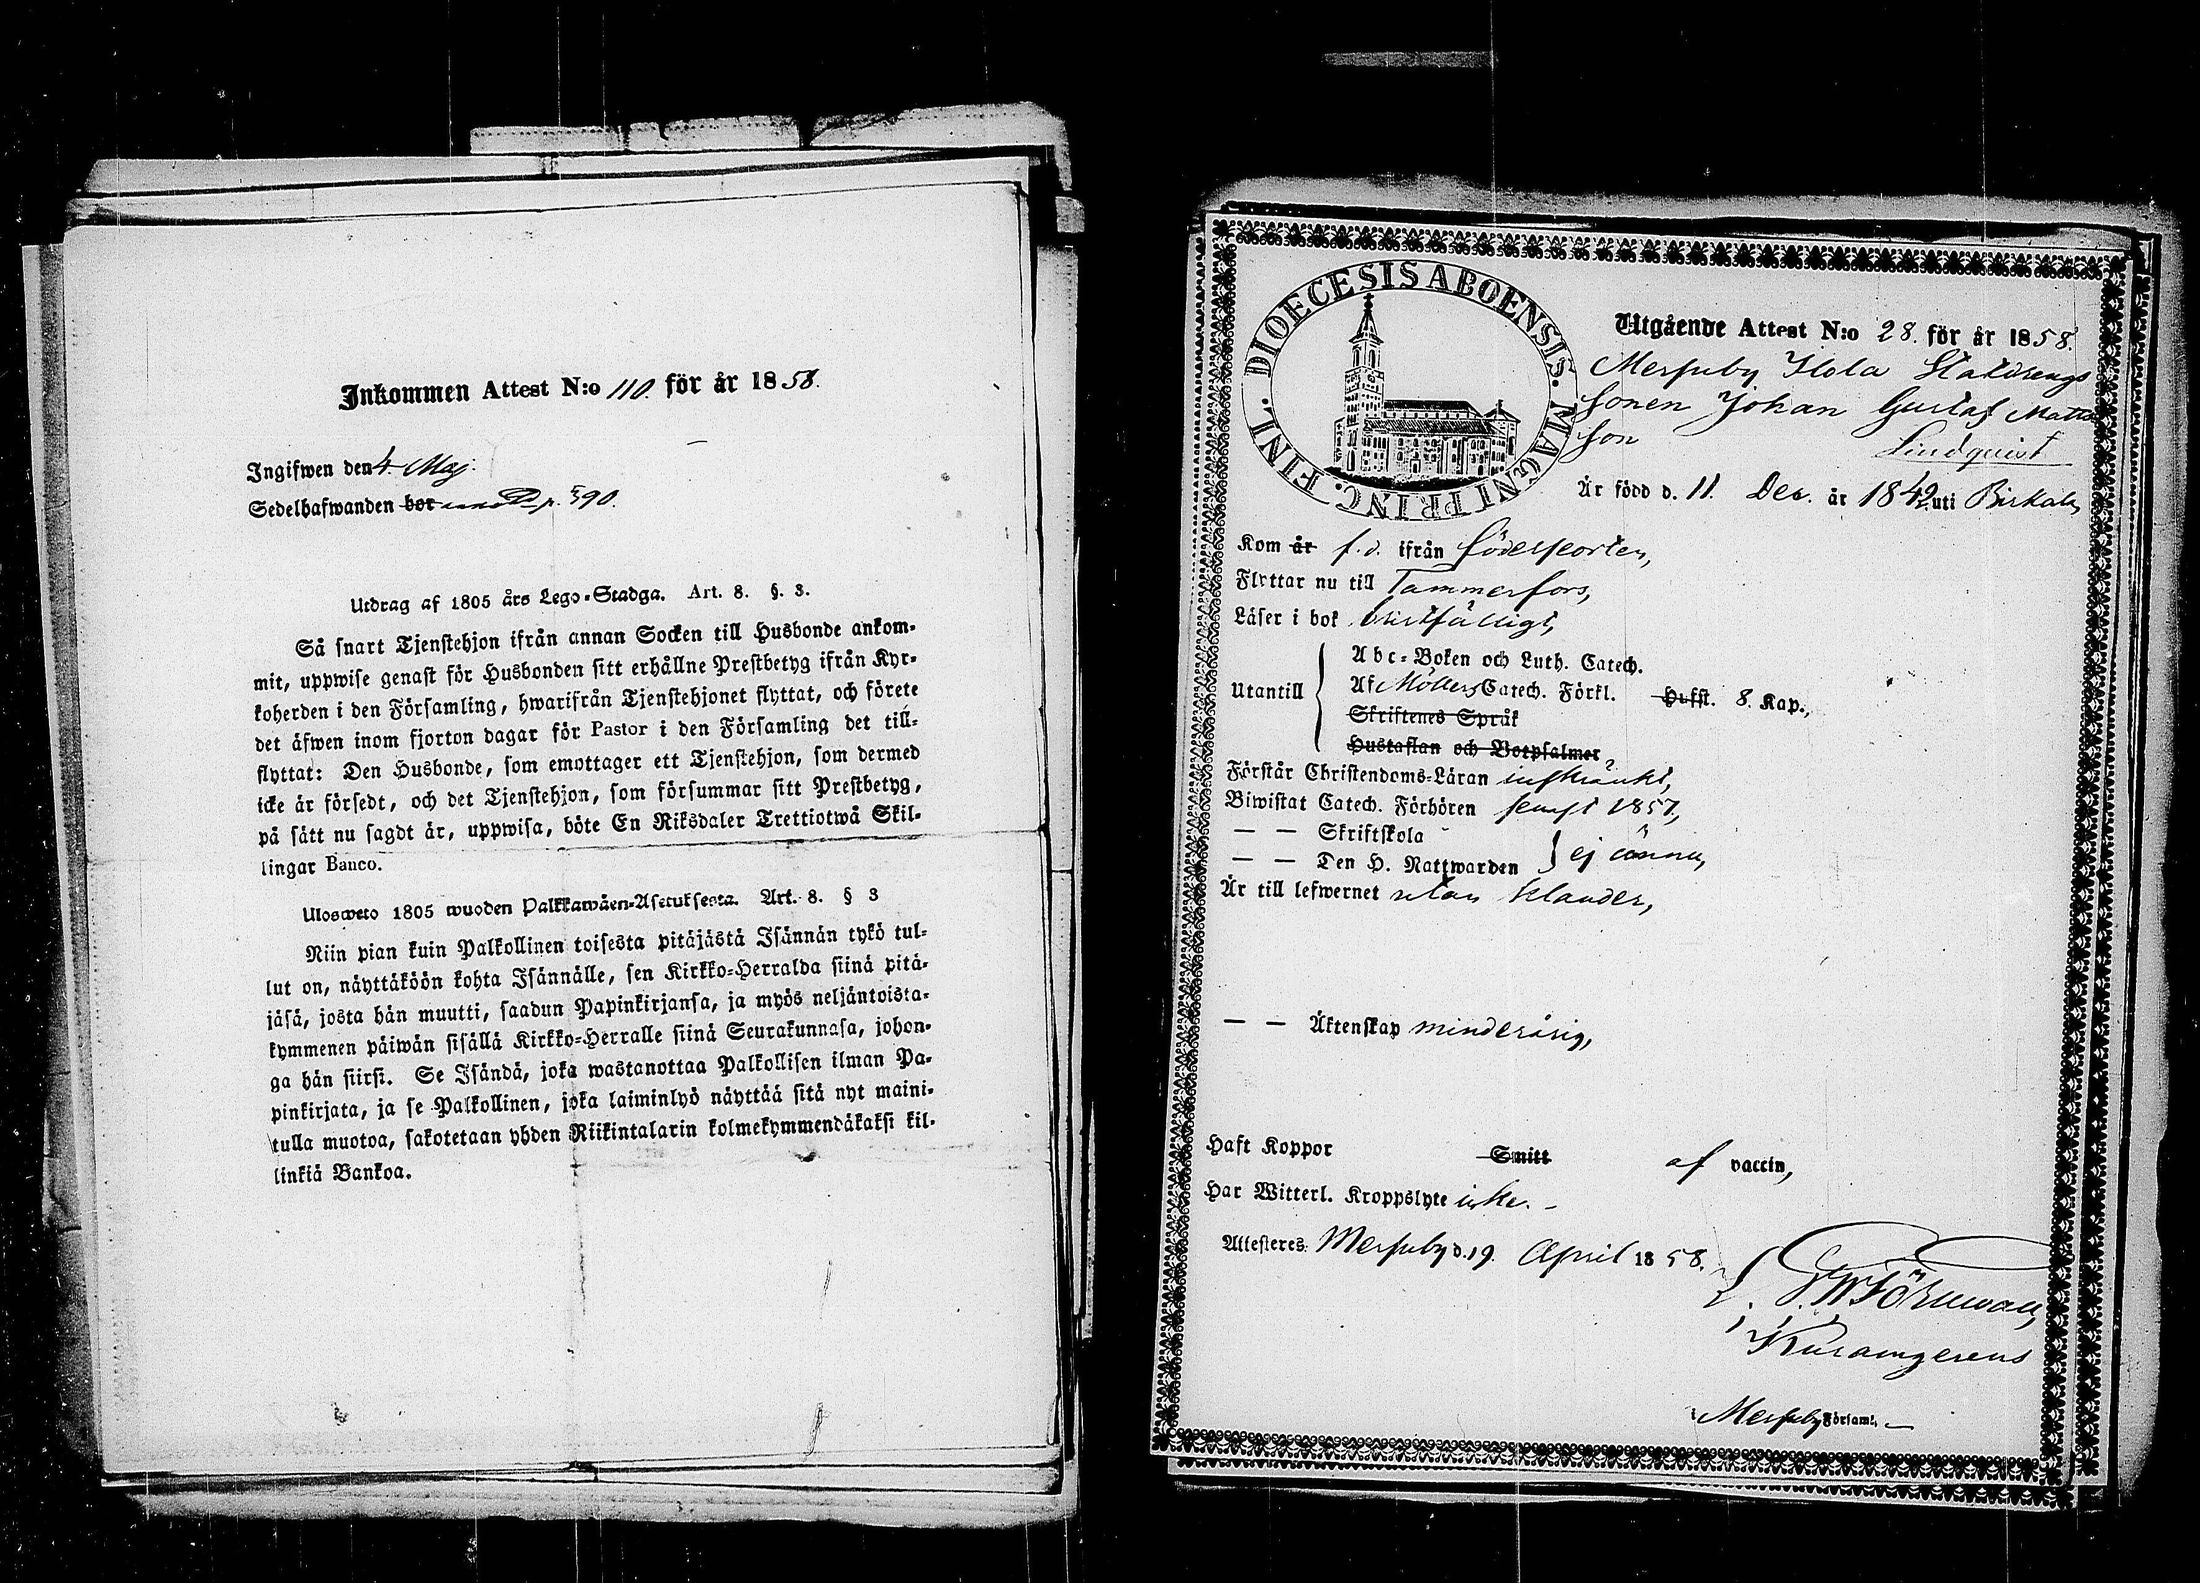 Inkommen Attest N:o 110. för år 1858.
Ingifwen den 4. Maj.
Sedelhafwanden bor p. 590.
Utdrag af 1805 års Lego-Stadga. Art. 8. §. 3.
Så snart Tjenstehjon ifrån annan Socken till Husbonde ankom-
mit, uppwise genast för Husbonden sitt erhållne Prestbetyg ifrån Kyr-
koherden i den Församling, hwarifrån Tjenstehjonet flyttat, och förete
det äfwen inom fjorton dagar för Pastor i den Församling det till-
flyttat: Den Husbonde, som emottager ett Tjenstehjon, som dermed
icke är försedt, och det Tjenstehjon, som försummar sitt Prestbetyg,
på sätt nu sagdt är, uppwisa, böte En Riksdaler Trettiotwå Skil-
lingar Banco.
Ulosweto 1805 wuoden Palkkawäen-Asetuksesta. Art. 8. § 3
Niin pian kuin Palkollinen toisesta pitäjästä Isännän tykö tul-
lut on, näyttäköön kohta Isännälle, sen Kirkko-Herralda siinä pitä-
jäsä, josta hän muutti, saadun Papinkirjansa, ja myös neljäntoista-
kymmenen päiwän sisällä Kirkko-Herralle siinä Seurakunnasa, johon-
ga hän siirsi. Se Isändä, joka wastanottaa Palkollisen ilman Pa-
pinkirjata, ja se Palkollinen, joka laiminlyö näyttää sitä nyt maini-
tulla muotoa, sakotetaan yhden Riikintalarin kolmekymmendäkaksi kil-
linkiä Bankoa.
DIOECESIS ABOENSIS. MAGNI PRINC. FINL.
Utgående Attest N:o 28. för år 1858.
Messuby Hola Statdrengs
sonen Johan Gustaf Matts
son Lindquist
Är född d. 11. Dec. år 1842 uti Birkala,
Kom år f. d. ifrån födelseorten,
Flyttar nu till Tammerfors,
Läser i bok bristfälligt,
Utantill
Abc-Boken och Luth. Catech.
Af Möllers Catech. Förkl. Hufst. 8. Kap.,
Skriftenes Språk
Hustaflan och Botpsalmer
Förstår Christendoms-Läran inskränkt,
Biwistat Catech. Förhören senast 1857,
— — Skriftskola
— — Den H. Nattwarden } ej ännu,
Är till lefwernet utan klander,
— — Äktenskap minderårig,
Haft Koppor Smitt af vaccin,
Har Witterl. Kroppslyte icke. -
Attesteres Messuby d. 19. April 1858.
Messuby Församl. —